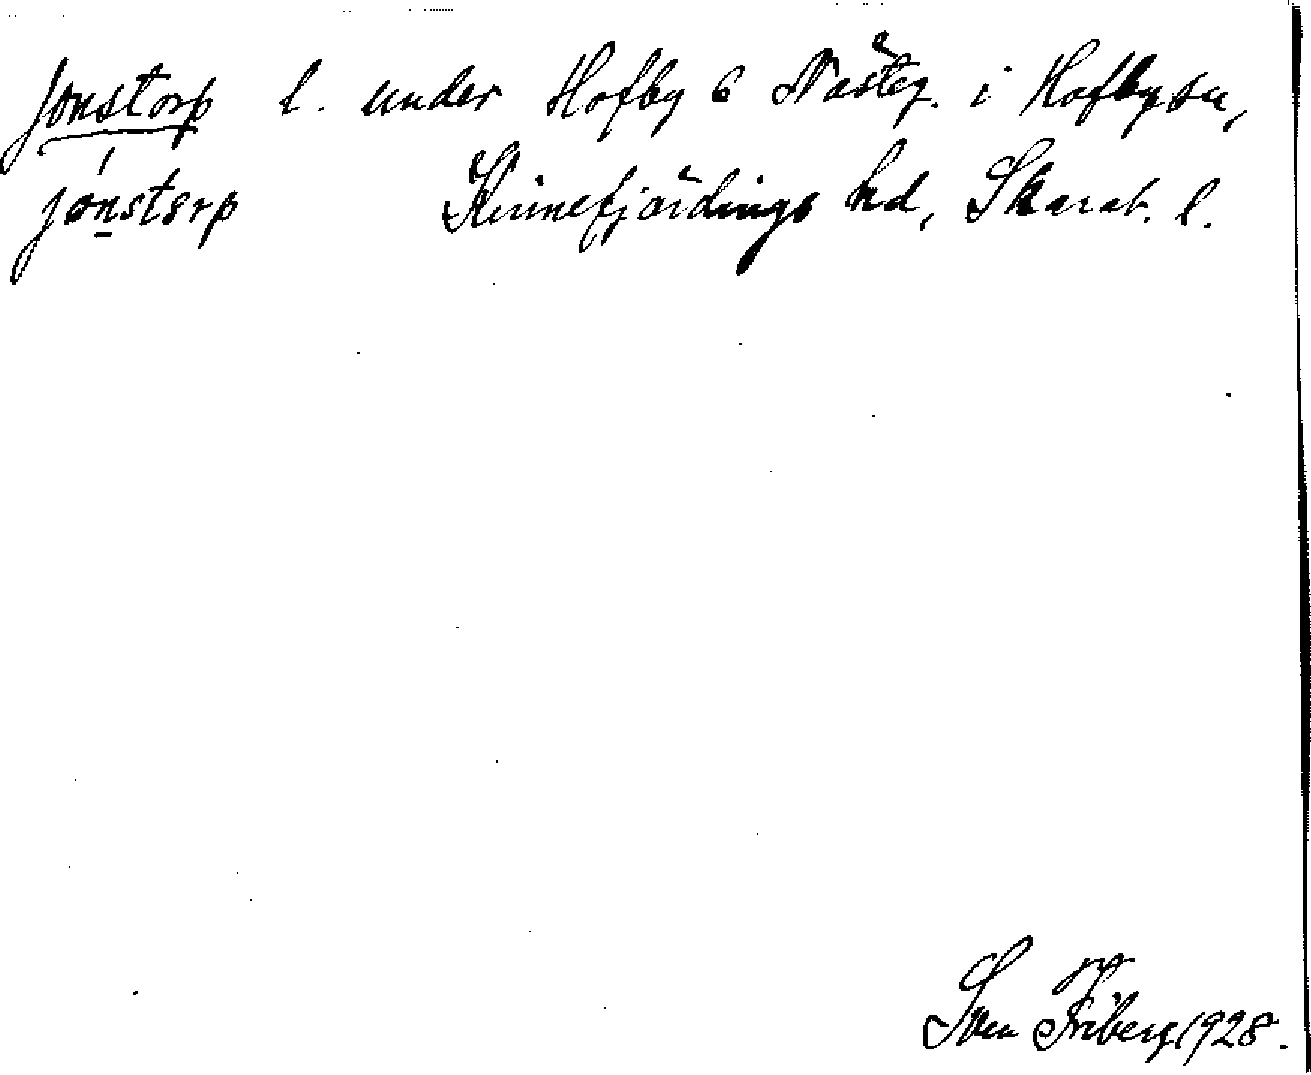 Jonstorp l. under Hofby 6 Nästeg. i Hofby sn,
jónstorp Kinnefjärdings hd, Skarab. l.
Sven Friberg 1928.